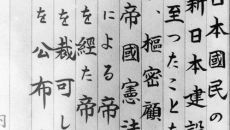 日本國民の
新日本建設
至つたこと
、樞密顧
帝國憲法
による帝
を經た帝
を裁可し
を公布